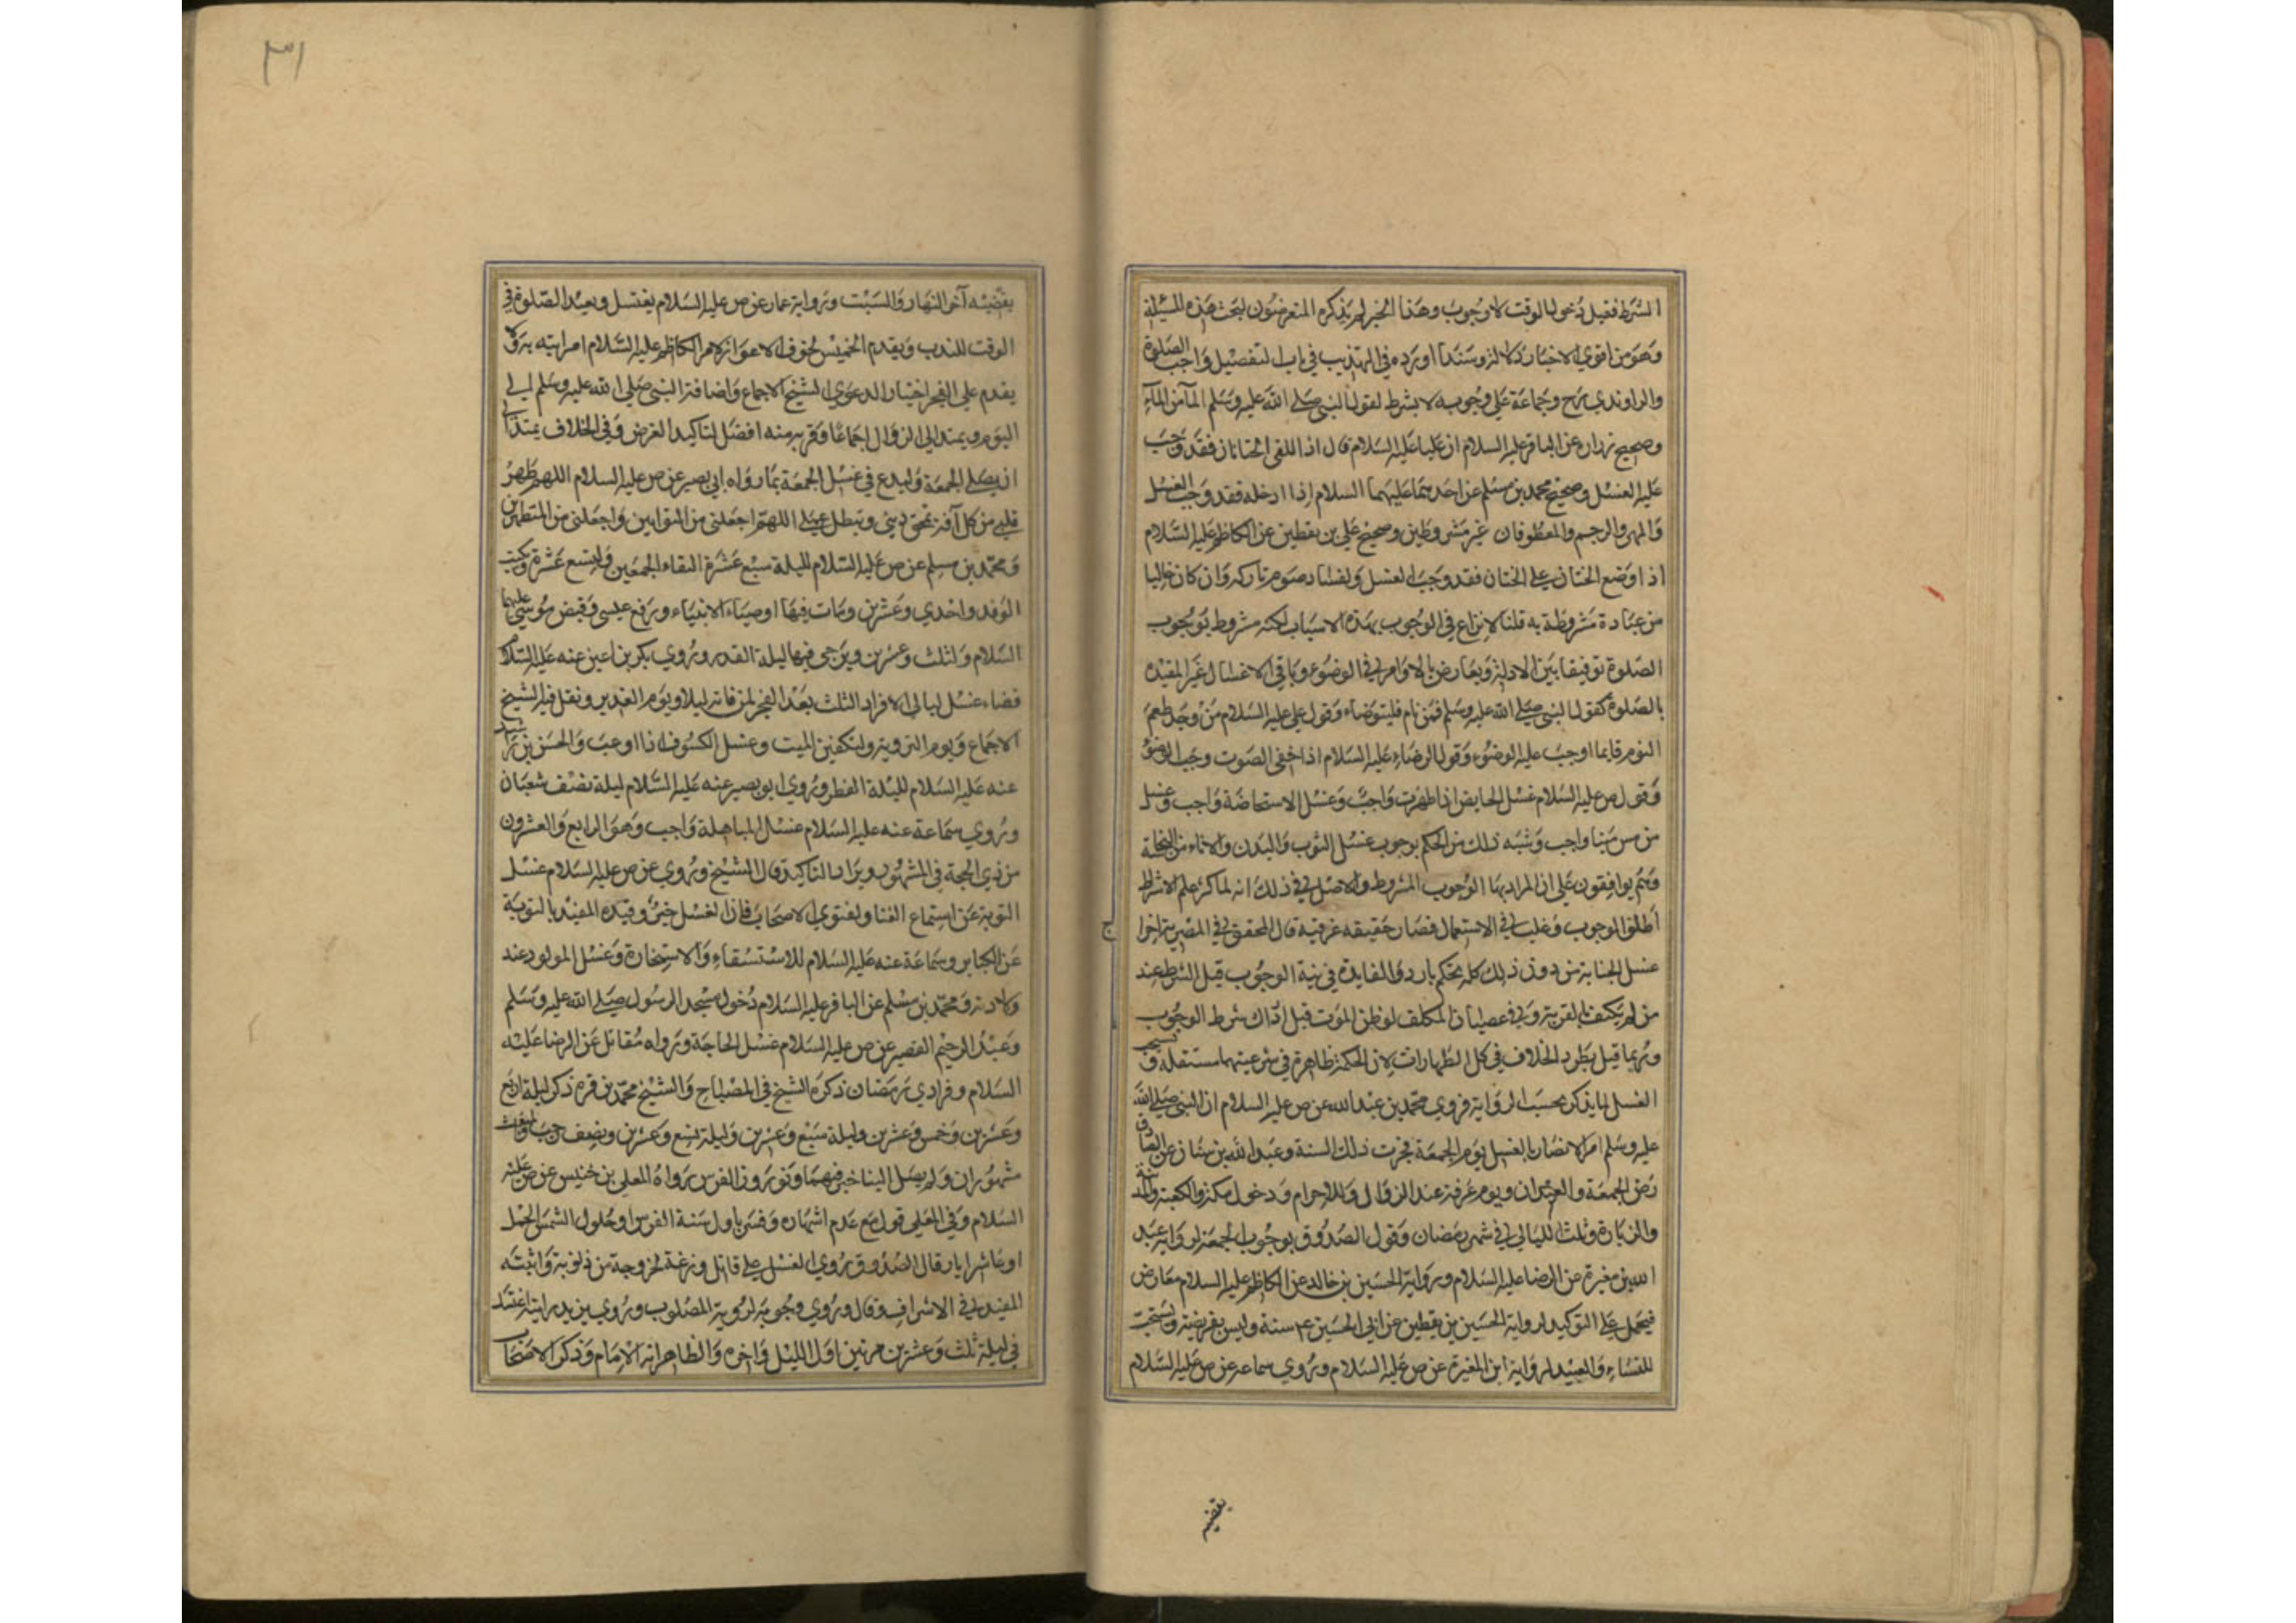 الشرط فقيل دخول الوقت لا وجوب وهذا الخبر لم يذكره المتعرضون لبحث هذه المسئلة
وهو من اقوي الاخبار دلالة وسندا اورده في التهذيب في باب تفصيل واجب الصلوة
والراوندي رح وجماعة علي وجوبه لا بشرط لقول النبي صلي الله عليه وسلم المآ من المآء
وصحيح زرارة عن الباقر عليه السلام ان عليا عليه السلام قال اذا التقي الختانان فقد وجب
عليه الغسل وصحيح محمد بن مسلم عن احدهما عليهما السلام اذا ادخله فقد وجب الغسل
والمهر والرجم والمعطوفان غير مشروطين وصحيح علي بن يقطين عن الكاظم عليه السلام
اذا وضع الختان علي الختان فقد وجب الغسل ولفساد صوم تاركه وان كان خاليا
من عبادة مشروطة به قلنا لا نزاع في الوجوب بهذه الاسباب لكنه مشروط بوجوب
الصلوة توفيقا بين الادلة ويعارض بالاوامر في الوضوء وباقي الاغسال غير المقيده
بالصلوة كقول النبي صلي الله عليه وسلم فمن نام فليتوضاء وقول علي عليه السلام من وجد طعم
النوم قايما اوجب عليه الوضوء وقول الرضاء عليه السلام اذا خفي الصوت وجب الوضؤ
وقول ص عليه السلام غسل الحايض اذا طهرت واجب وغسل الاستحاضة واجب وغسل
من مس ميتا واجب وشبه ذلك من الحكم بوجوب غسل الثوب والبدن والاناء من النجاسة
وهم يوافقون علي ان المراد بها الوجوب المشروط والاصل في ذلك انه لما كثر علم الاشتراط
اطلق الوجوب وغلب في الاستعمال فصار حقيقه عرفيه قال المحقق في المصرية اخرا
غسل الجنابة من دون ذلك كله تحكم بارد والفايدة في نية الوجوب قبل الشرط عند
من لم يكتف بالقربة وفي عصيان المكلف لو ظن الموت قبل ادراك شرط الوجوب
وربما قيل بطرد الخلاف في كل الطهارات لان الحكمة ظاهرة في شرعيتها مستقلة
الغسل لما يذكر بحسب الرواية فروي محمد بن عبد الله عن ص عليه السلام ان النبي صلي الله
عليه وسلم امر الانصار بالغسل يوم الجمعة فجرت ذلك السنة وعبد الله بن سنان عن الصادق
رض الجمعة والعيدان ويوم عرفة عند الزوال وللاحرام ودخول مكة والكعبة والمدينة
والزيارة وثلث الليالي في شهر رمضان وقول الصدوق بوجوب الجمعة لرواية عبد
الله بن مغيرة عن الرضا عليه السلام ورواية الحسين بن خالد عن الكاظم عليه السلام معارض
فيحمل علي التوكيد لرواية الحسين بن يقطين عن ابي الحسين ع سنة وليس بفريضة ويستحب
للنساء والعبيد لرواية ابن المغيرة عن ص عليه السلام وروي سماعه عن ص عليه السلام
يقضيه
٣١
يقضيه آخر النهار والسبت ورواية عمار عن ص عليه السلام يغتسل ويعيد الصلوة في
الوقت للندب ويقدم الخميس لخوف الاعواز لامر الكاظم عليه السلام امراتيه به ولا
يقدم علي الفجر اختيارا لدعوي الشيخ الاجماع واضافة النبي صلي الله عليه وسلم الي
اليوم ويمتد الي الزوال اجماعا وقربه منه افضل لتاكيد الغرض وفي الخلاف يمتد الي
ان يصلي الجمعة وليدع في غسل الجمعة بما رواه ابي بصير عن ص عليه السلام اللهم طهر
قلبي من كل آفة تمحق ديني وتبطل عملي اللهم اجعلني من التوابين واجعلني من المتطهرين
ومحمد بن مسلم عن ص عليه السلام لليلة سبع عشرة التقاء الجمعين ولتسع عشرة وكتب
الوفد واحدي وعشرين ومات فيها اوصياء الانبياء ورفع عيسي وقبض موسي عليهما
السلام ولثلث وعشرين ويرجي فيها ليلة القدر وروي بكر بن اعين عنه عليه السلام
قضاء غسل ليالي الافراد الثلث بعد الفجر لمن فاته ليلا ويوم الغدير ونقل فيه الشيخ
الاجماع ويوم التروية ولتكفين الميت وغسل الكسوف اذا اوعب والحسن بن راشد
عنه عليه السلام لليلة الفطر وروي ابو بصير عنه عليه السلام ليلة نصف شعبان
وروي سماعة عنه عليه السلام غسل المباهلة واجب وهو الرابع والعشرون
من ذي الحجة في المشهور ويراد التاكيد قال الشيخ وروي عن ص عليه السلام غسل
التوبة عن استماع الغنا ولفتوي الاصحاب فان الغسل خير وقيده المفيد بالتوبة
عن الكباير وسماعة عنه عليه السلام للاستسقاء والاستخارة وغسل المولود عند
ولادته ومحمد بن مسلم عن الباقر عليه السلام دخول مسجد الرسول صلي الله عليه وسلم
وعبد الرحيم القصير عن ص عليه السلام غسل الحاجة ورواه مقاتل عن الرضا عليه
السلام وفرادي رمضان ذكره الشيخ في المصباح والشيخ محمد بن قره ذكر ليلة اربع
وعشرين وخمس وعشرين وليلة سبع وعشرين وليلة تسع وعشرين ونصف رجب والمبعث
مشهوران ولم يصل الينا خبر فيهما ونوروز الفرس رواه المعلي بن خنيس عن ص عليه
السلام وفي المعلي قول مع عدم اشتهاره وفسر باول سنة الفرس او حلول الشمس الحمل
او عاشر ايار قال الصدوق وروي الغسل علي قاتل وزغة لخروجه من ذنوبه واثبته
المفيد في الاشراف وقال وروي وجوبه لرؤية المصلوب وروي بريد رايته اغتسل
في ليلة ثلث وعشرين مرتين اول الليل واخره والظاهر انه الامام وذكر الاصحاب